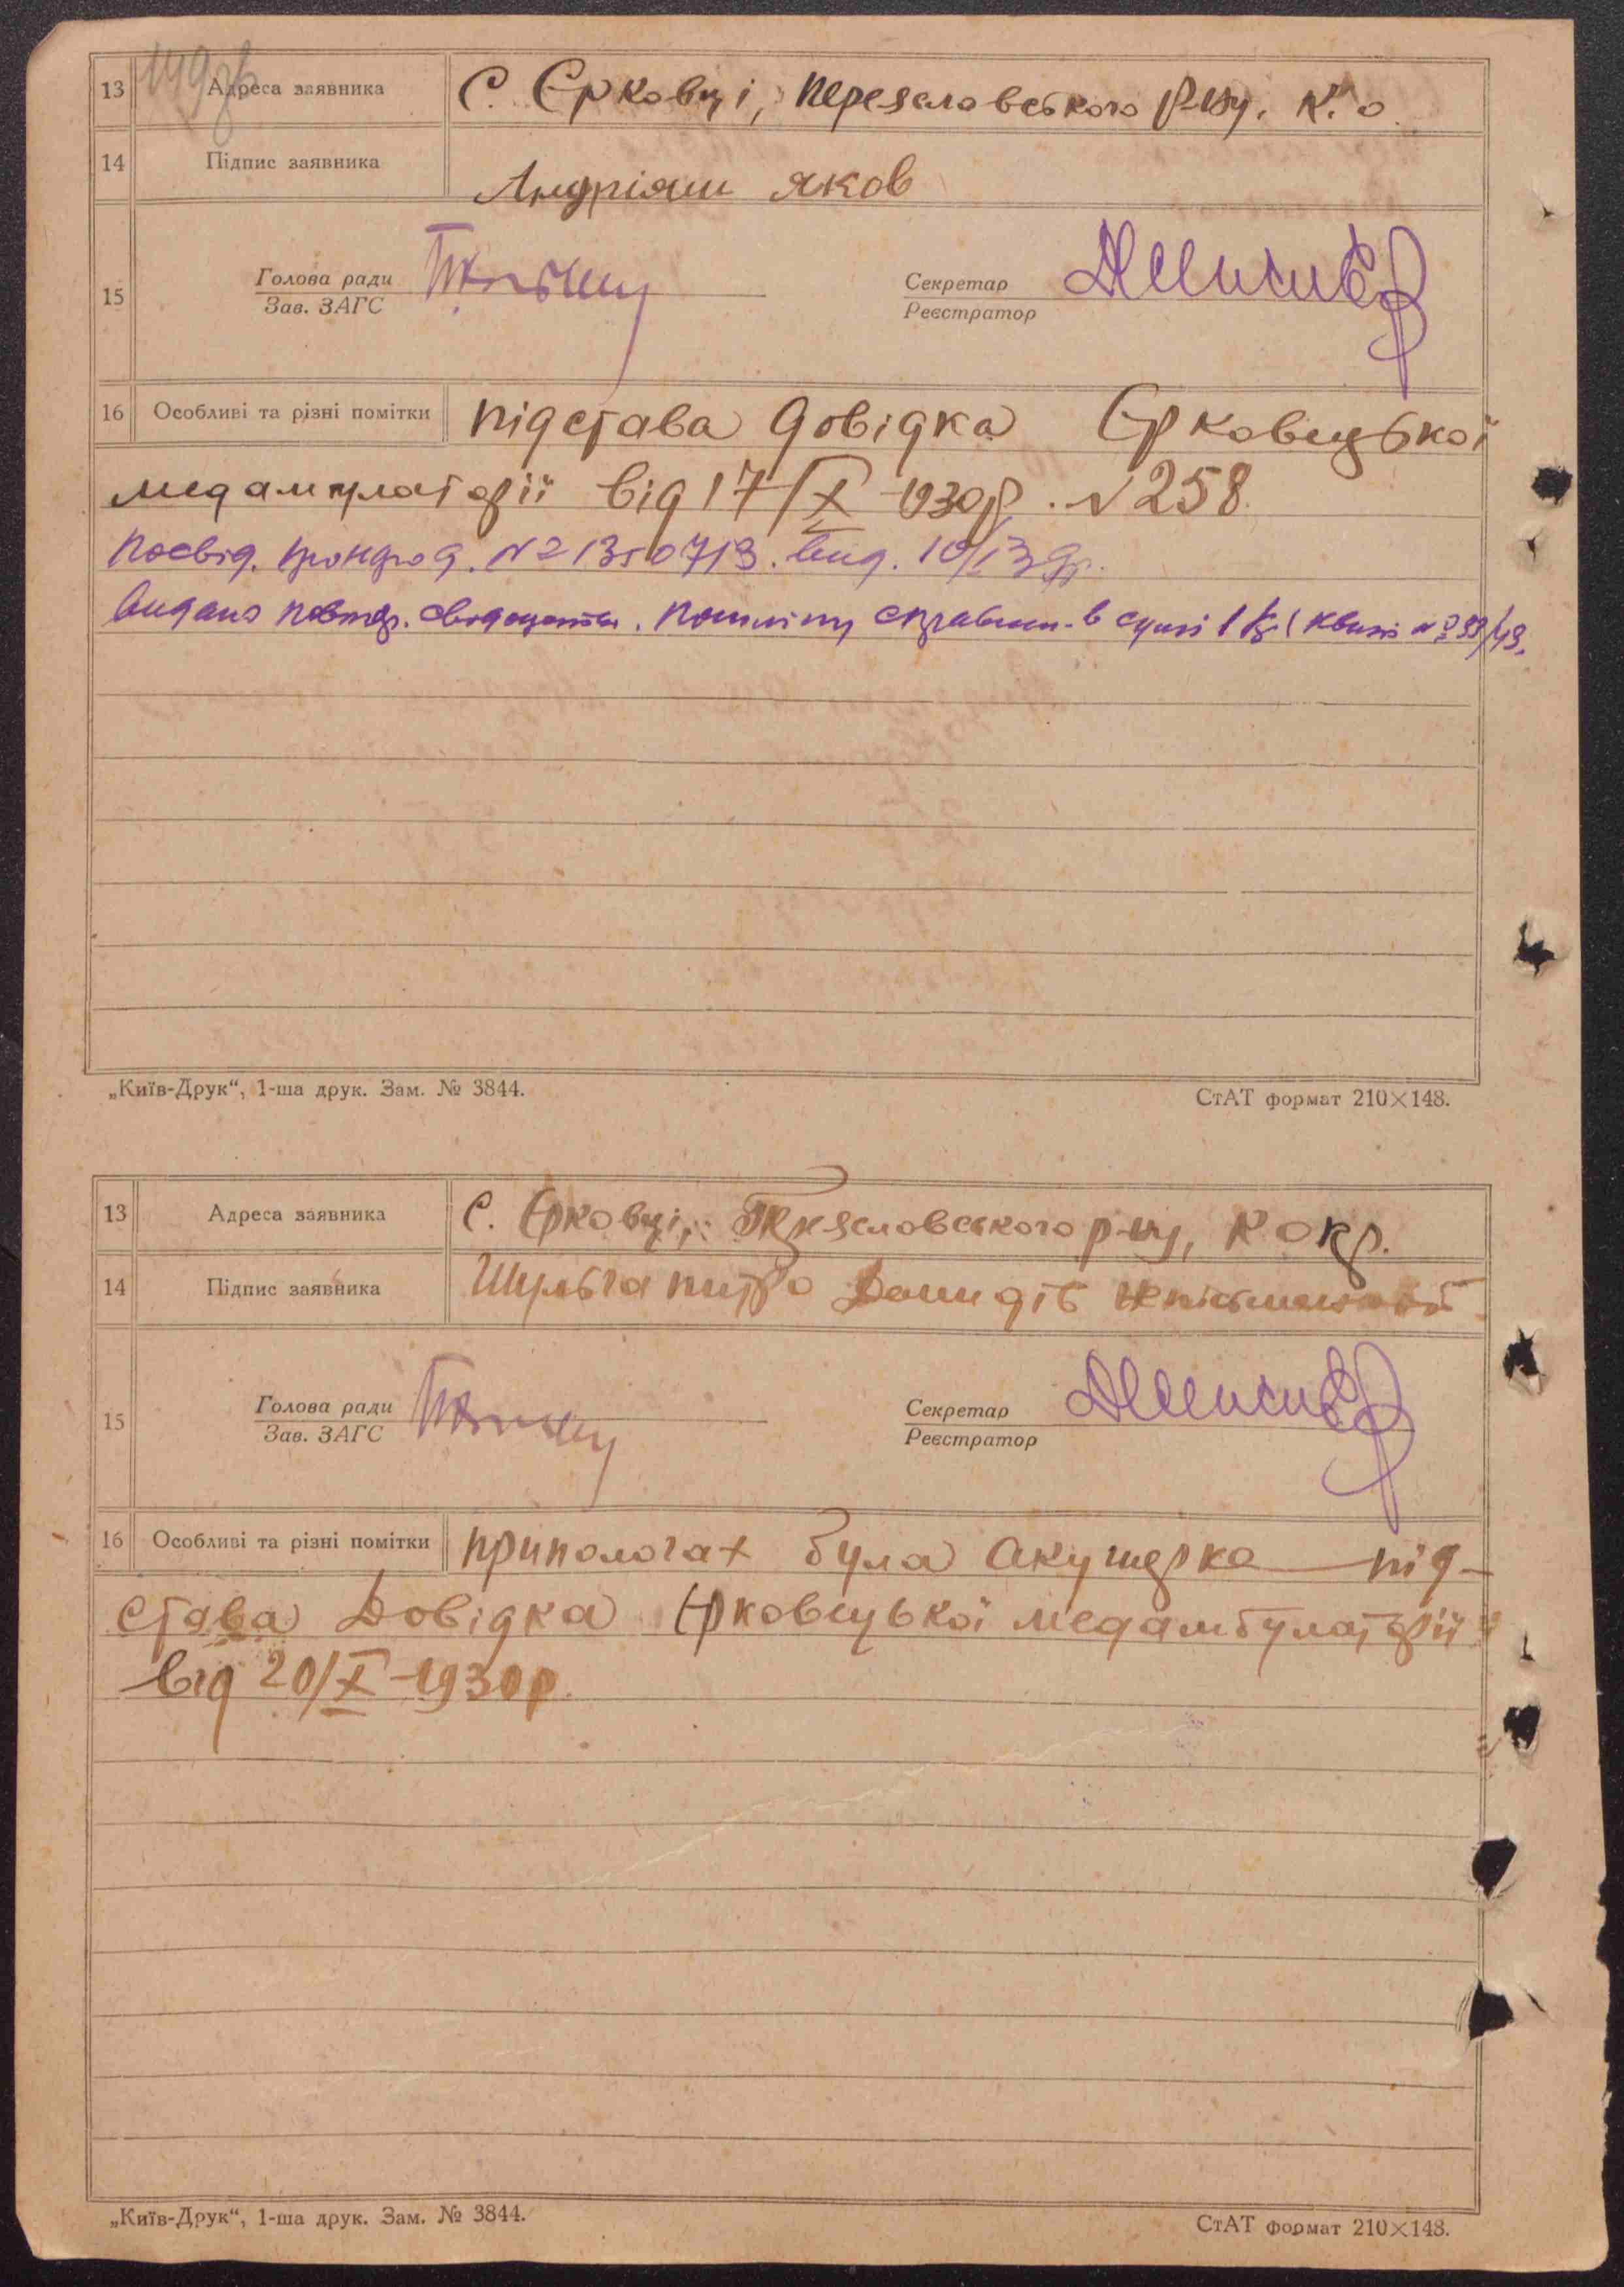 149зв
13 Адреса заявника С. Єрковці, Переяславського р-ну. К. о.
14 Підпис заявника Андріяш Яков
15 Голова ради Секретар
Зав. ЗАГС Реєстратор
16 Особливі та різні помітки підстава довідка Єрковецької
медампулаторії від 17/X-1930р. №258.
Посвід. №21350713. вид. 10/
видано повтор. в сумі 1 кр
„Київ-Друк“, 1-ша друк. Зам. № 3844. СтАТ формат 210×148.
13 Адреса заявника С. Єрковці, Переяславського р-ну, К окр.
14 Підпис заявника Шульга Петро Демидів неписьменний
15 Голова ради Секретар
Зав. ЗАГС Реєстратор
16 Особливі та різні помітки при пологах була акушерка — під-
става Довідка Єрковецької медамбулаторії
від 20/X-1930р.
„Київ-Друк“, 1-ша друк. Зам. № 3844. СтАТ формат 210×148.